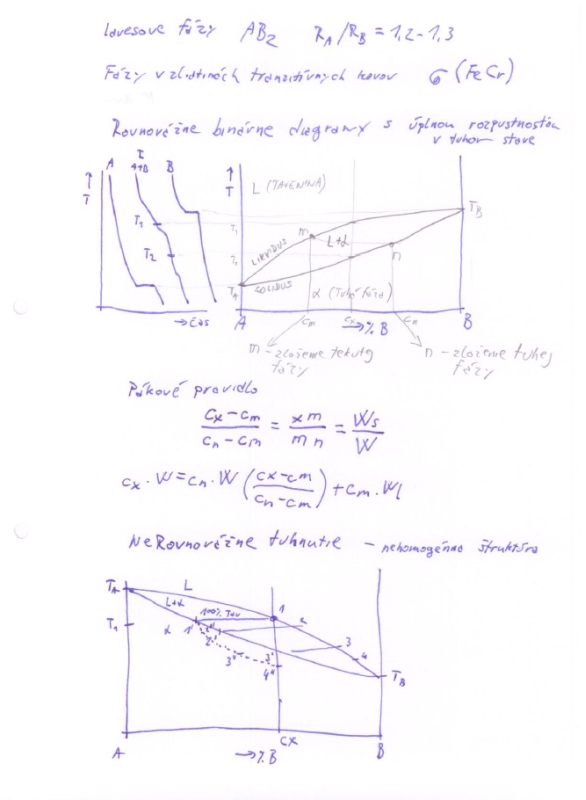 Lavesove fázy AB2 RA/RB = 1,2-1,3
Fázy v zliatinách tranzitívnych kovov σ (FeCr)
Rovnovážne binárne diagramy s úplnou rozpustnosťou
v tuhom stave
A A+B B
↑
T
T1
T2
→ čas
↑
T
L (TAVENINA)
TB
T1
m
L+α
LIKVIDUS
n
T2
SOLIDUS
TA
α (Tuhá fáza)
A cm cx →%B cn B
m - zloženie tekutej
fázy
n - zloženie tuhej
fázy
Pákové pravidlo
cx-cm / cn-cm = xm / mn = Ws / W
cx . W = cn . W (cx-cm / cn-cm) + cm . Wl
NeRovnovážne tuhnutie - nehomogénna štruktúra
TA
L
L+α
100% Tav
1
T1
α
1'
2
2'
3
4
3'
3"
4"
TB
A →%B cx B